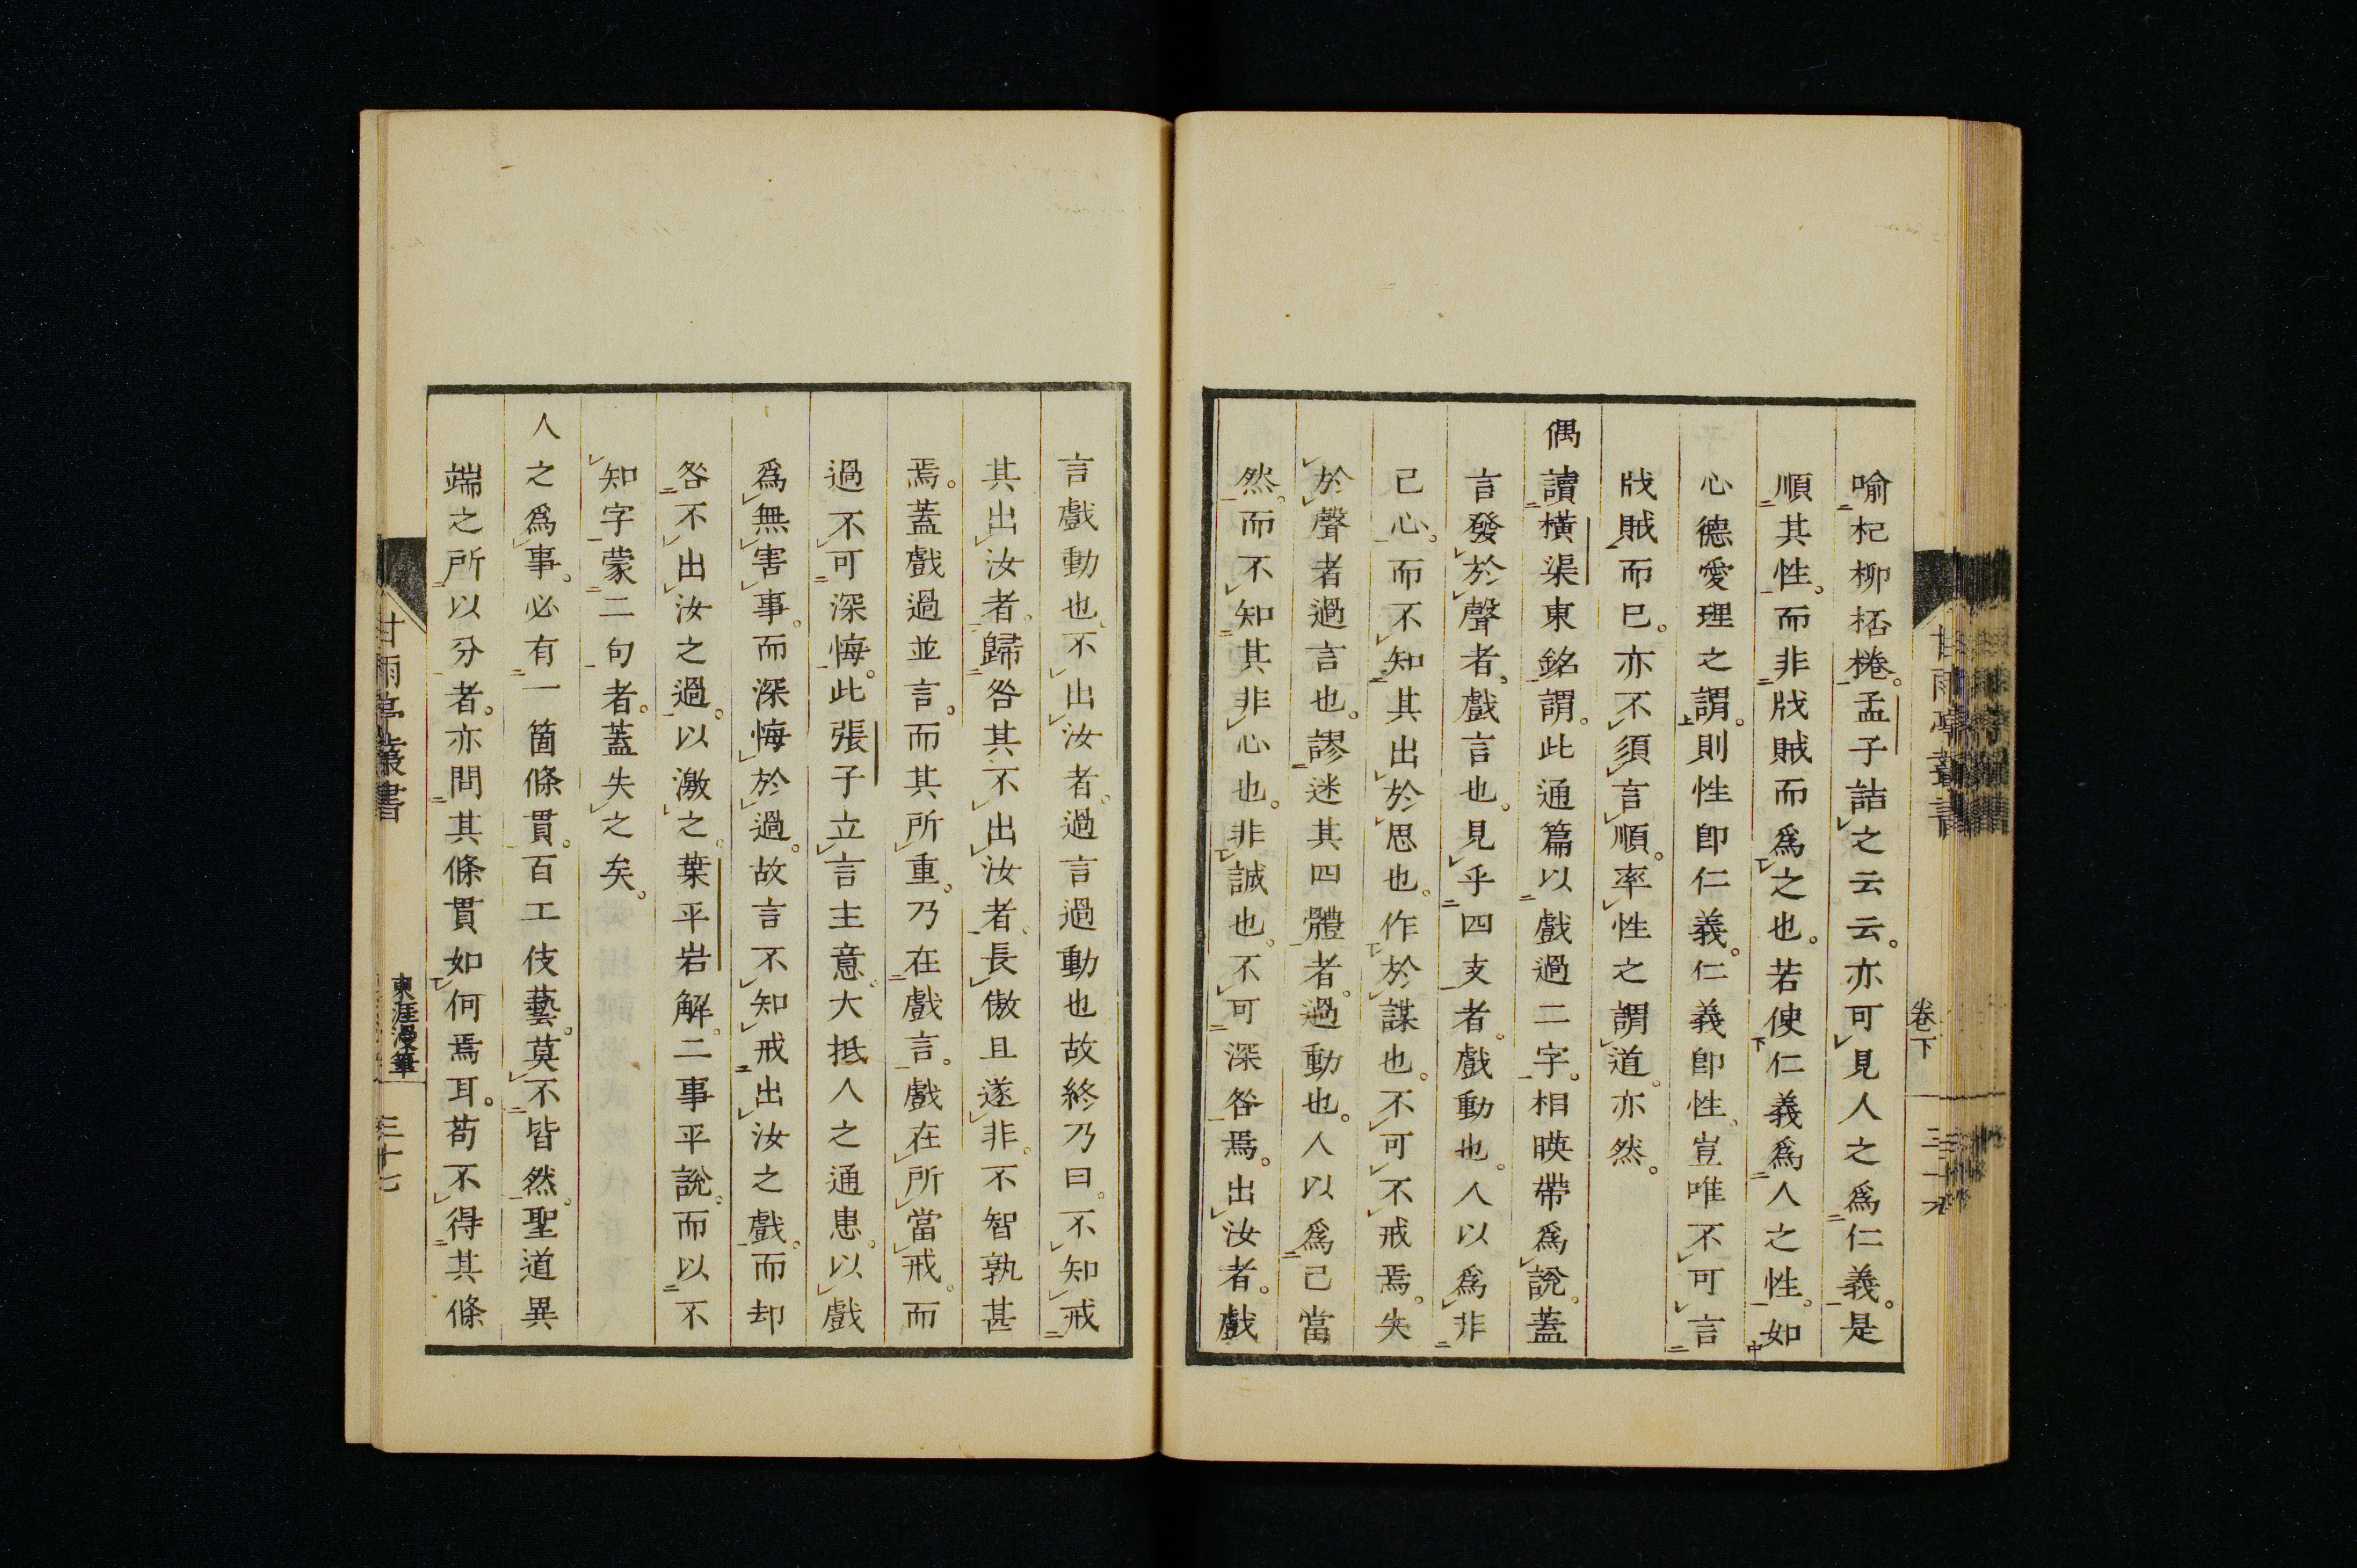 喻杞柳桮棬。孟子詰之云云。亦可見人之爲仁義。是
順其性。而非戕賊而爲之也。若使仁義爲人之性。如
心德愛理之謂。則性卽仁義。仁義卽性。豈唯不可言
戕賊而已。亦不須言順。率性之謂道。亦然。
偶讀橫渠東銘謂。此通篇以戲過二字。相暎帶爲說。蓋
言發於聲者。戲言也。見乎四支者。戲動也。人以爲非
己心。而不知其出於思也。作於謀也。不可不戒焉。失
於聲者過言也。謬迷其四體者。過動也。人以爲己當
然。而不知其非心也。非誠也。不可深咎焉。出汝者。戲
言戲動也。不出汝者。過言過動也故終乃曰。不知戒
其出汝者。歸咎其不出汝者。長傲且遂非。不智孰甚
焉。蓋戲過並言。而其所重。乃在戲言。戲在所當戒。而
過不可深悔。此張子立言主意。大抵人之通患。以戲
爲無害事。而深悔於過。故言不知戒出汝之戲。而却
咎不出汝之過。以激之。葉平岩解。二事平說。而以不
知字蒙二句者。蓋失之矣。
人之爲事。必有一箇條貫。百工伎藝。莫不皆然。聖道異
端之所以分者。亦問其條貫如何焉耳。苟不得其條
甘雨亭叢書
卷下
甘雨亭叢書
東涯漫筆
三十七